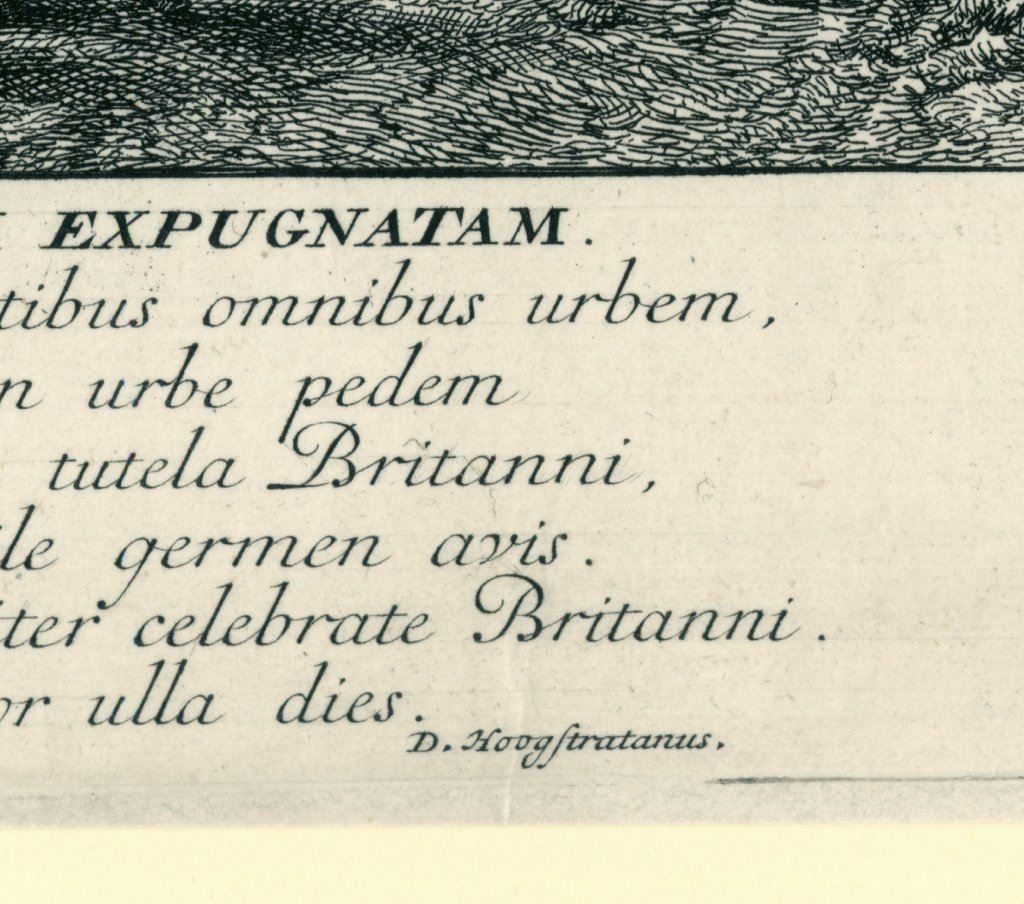 EXPUGNATAM.
tibus omnibus urbem,
n urbe pedem
tutela Britanni,
ile germen avis.
iter celebrate Britanni.
or ulla dies.
D. Hoogſtratanus.